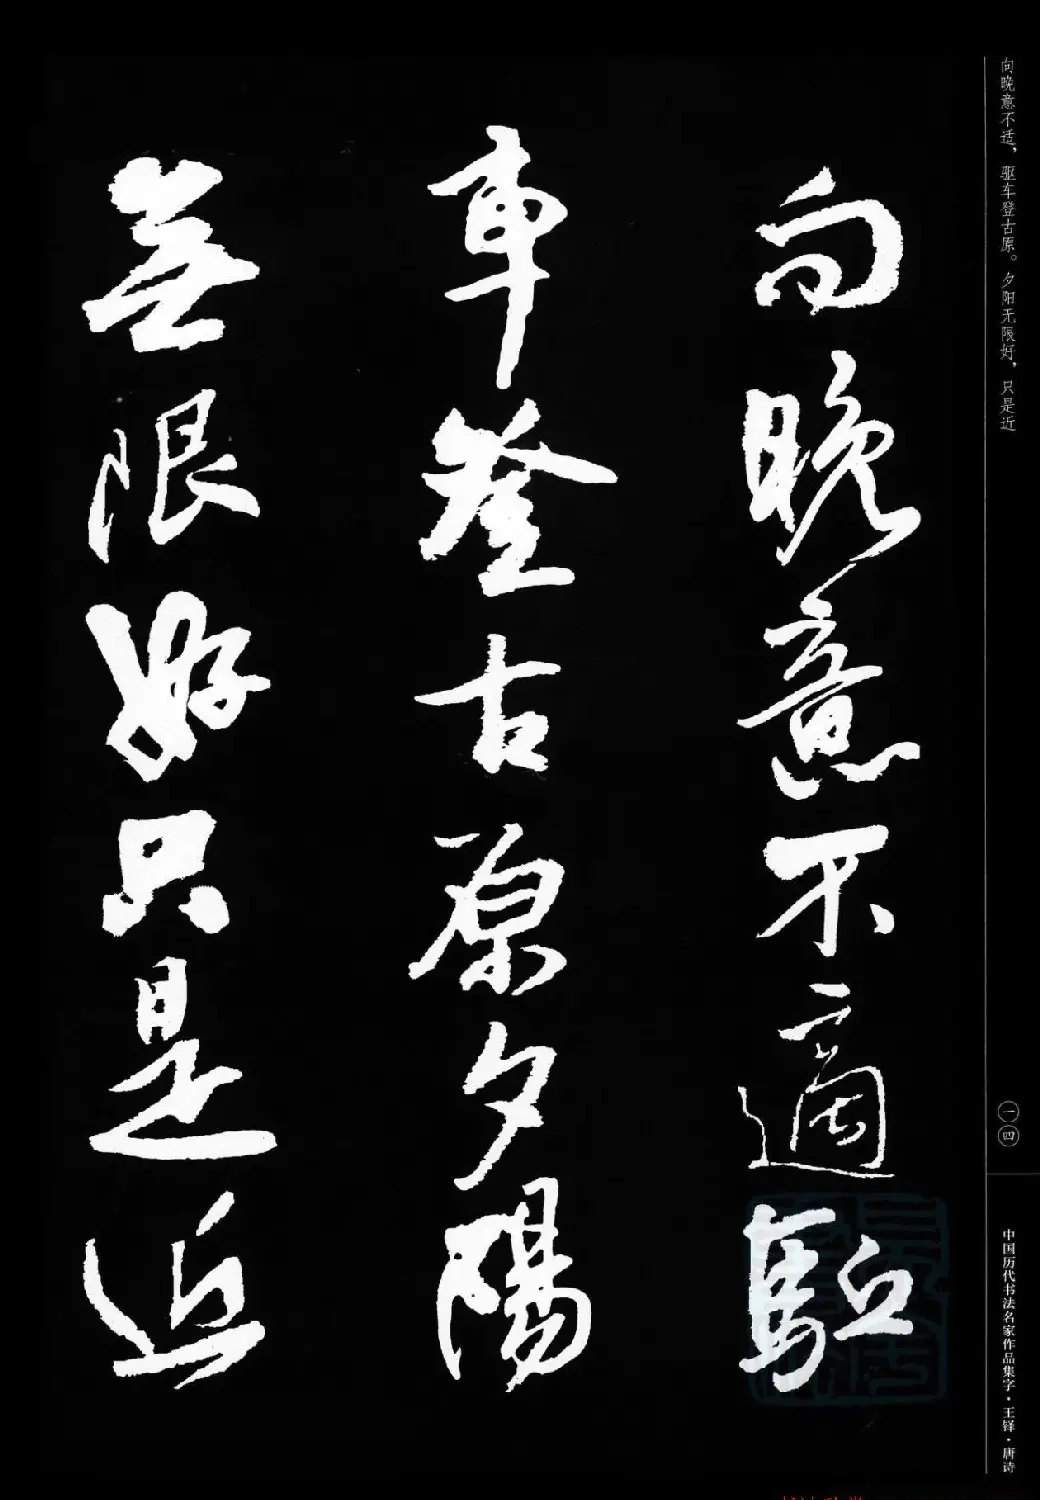 向晚意不適驅
車登古原夕陽
無限好只是近
向晚意不适，驱车登古原。夕阳无限好，只是近
一四
中国历代书法名家作品集字·王铎·唐诗